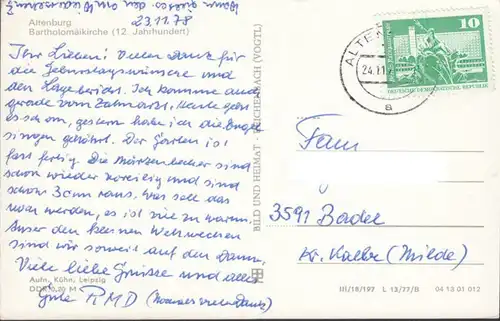 23.11.78
Altenburg
Bartholomäikirche (12. Jahrhundert)
Ihr Lieben! Vielen Dank für
die Geburtstagswünsche und
den Lagebericht. Ich komme auch
gerade vom Zahnarzt. Heute geht
es schon, gestern habe ich die Engel
singen gehört. Der Garten ist
fast fertig. Die Märzenbecher sind
schon wieder voreilig und sind
schon 3 cm raus. Was soll das
nur werden, es ist viel zu warm.
Ausser den kleinen Wehwehchen
sind wir soweit auf dem Damm.
Viele liebe Grüsse und alles
Gute RMD
Aufn. Kühn, Leipzig
DDR 0,20 M
BILD UND HEIMAT REICHENBACH (VOGTL)
24.11.
a
10
DEUTSCHE DEMOKRATISCHE REPUBLIK
Fam
3591 Badel
Kr. Kalbe (Milde)
III/18/197 L 13/77/B 04 13 01 012